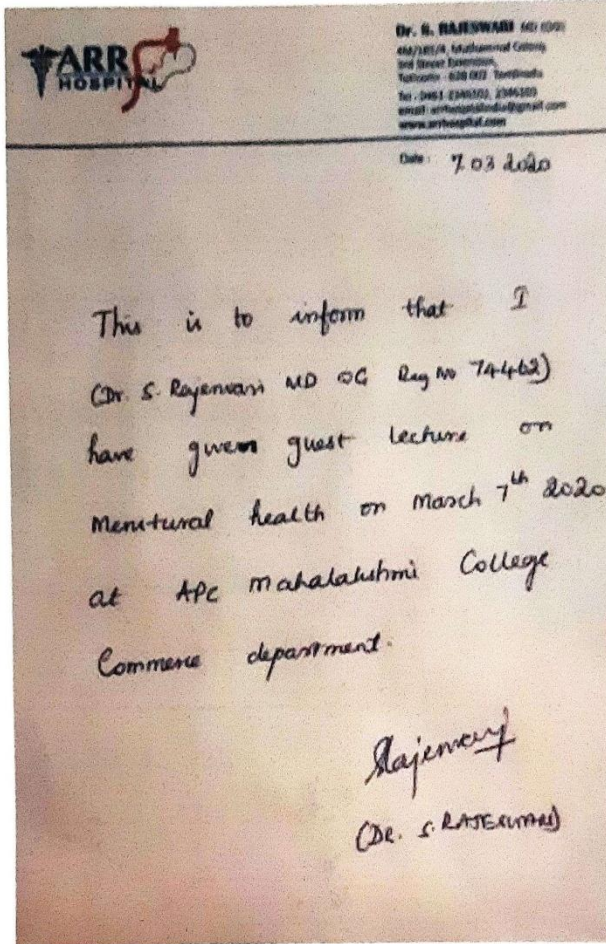 ARR
HOSPITAL
Dr. S. RAJESWARI MD (OG)
3rd Street Extension,
Tuticorin - 628 002. Tamilnadu
www.arrhospital.com
Date : 7 03 2020
This is to inform that I
(Dr. S. Rajeswari MD OG Reg No 74462)
have given guest lecture on
Menstural health on March 7th 2020
at APC Mahalakshmi College
Commerce department.
Rajeswari
(DR. S. RAJESWARI)